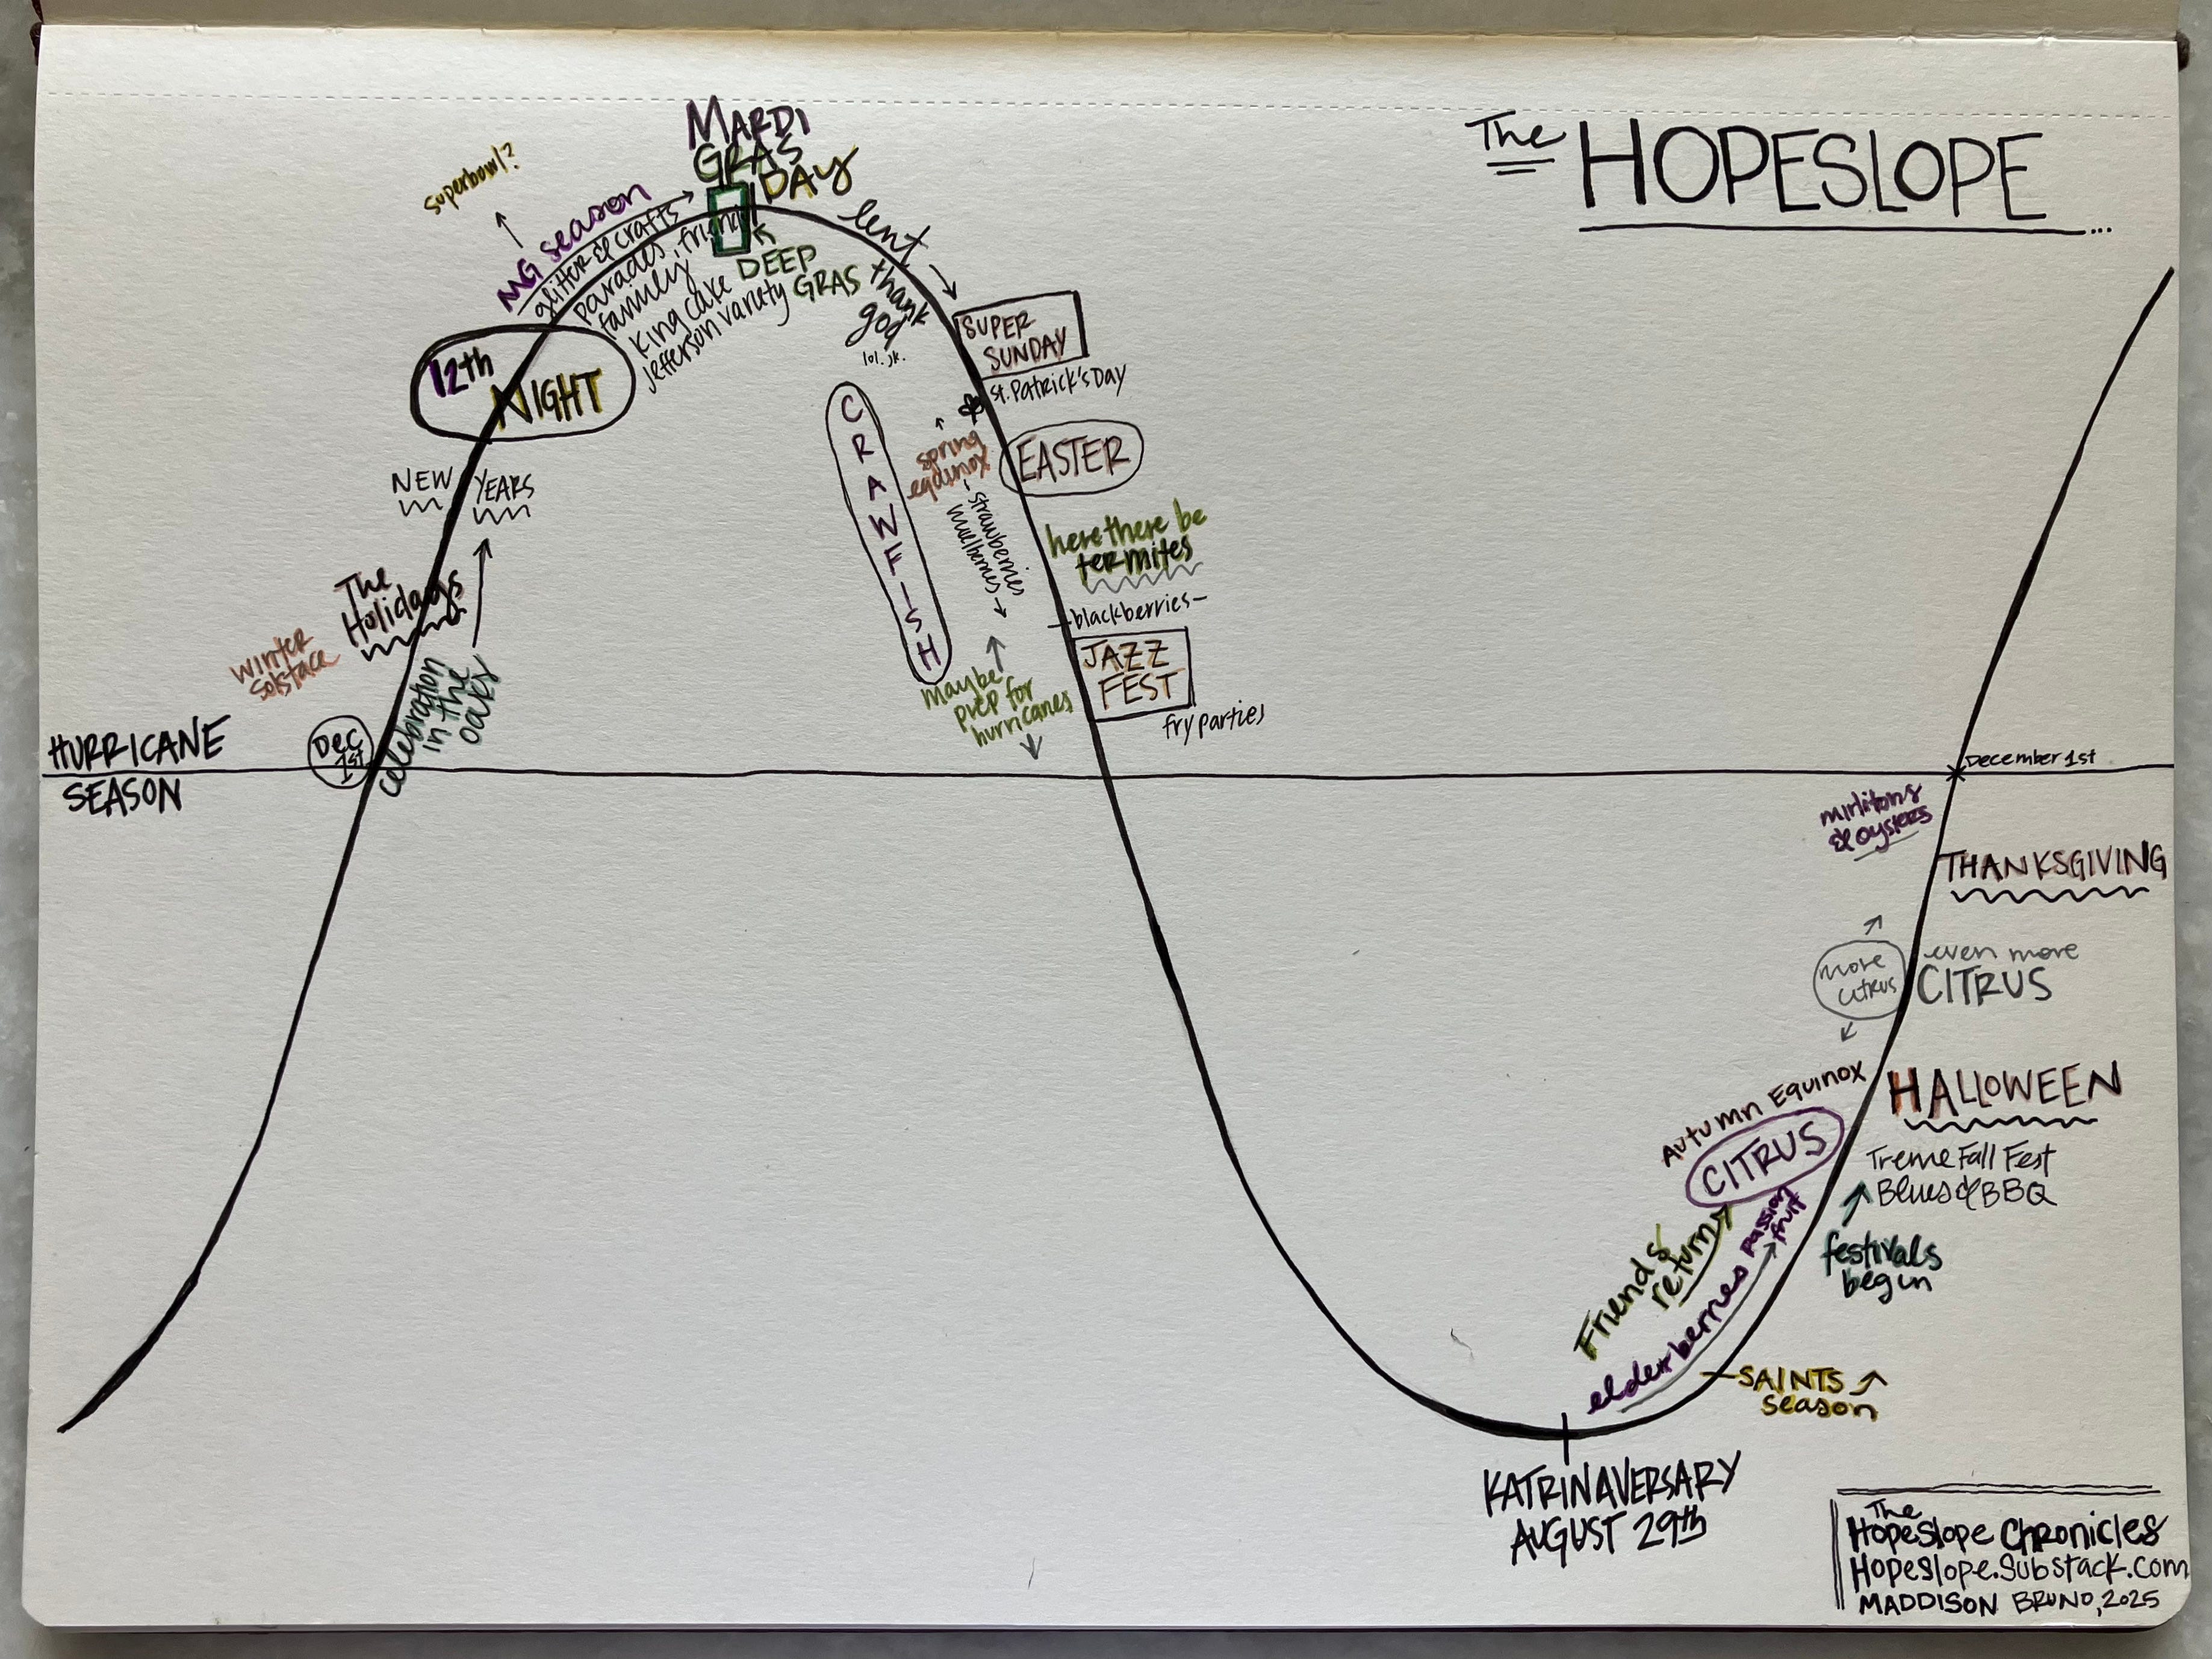 The HOPESLOPE...
MARDI
GRAS
DAY
superbowl?
MG season
glitter & crafts
parades, friends
family
king cake
Jefferson variety
DEEP
GRAS
lent
thank
god
lol. jk.
12th
NIGHT
NEW YEARS
The
Holidays
winter
solstace
celebration
in the
oaks
Dec
1st
HURRICANE
SEASON
SUPER
SUNDAY
St. Patrick's Day
CRAWFISH
spring
equinox
EASTER
strawberries
mulberries
here there be
termites
-blackberries-
JAZZ
FEST
fry parties
maybe
prep for
hurricanes
December 1st
mirlitons
& oysters
THANKSGIVING
more
citrus
even more
CITRUS
Autumn Equinox
HALLOWEEN
CITRUS
Treme Fall Fest
Blues & BBQ
passion
fruit
Friends
return
elderberries
festivals
begin
SAINTS
season
KATRINAVERSARY
AUGUST 29th
The
Hopeslope Chronicles
Hopeslope.Substack.com
MADDISON BRUNO, 2025